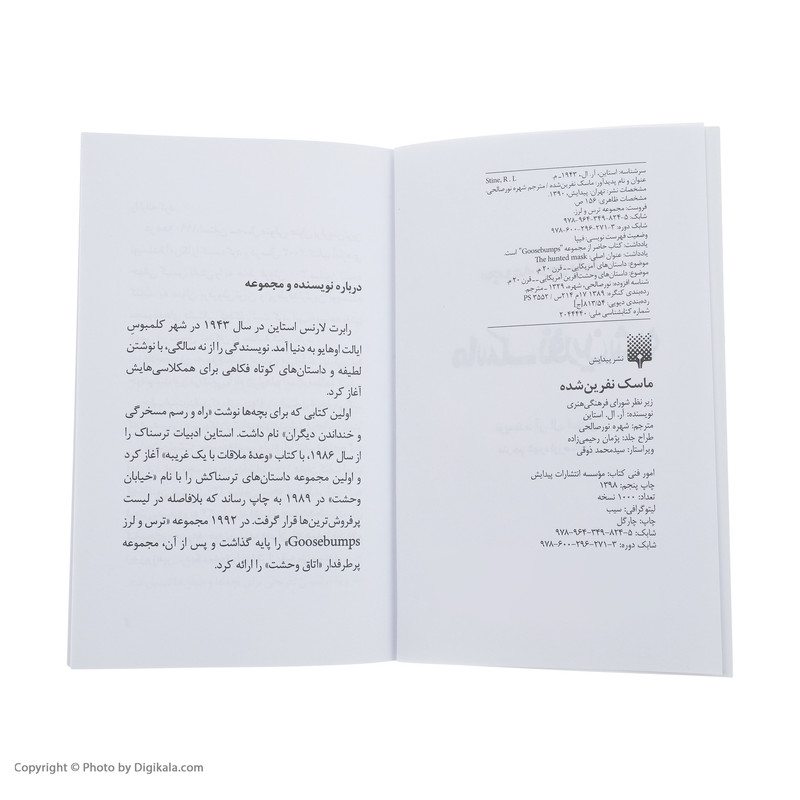 سرشناسه: استاین، آر. ال، ۱۹۴۳ـ م. Stine, R . l.
عنوان و نام پدیدآور: ماسک نفرین‌شده / مترجم شهره نورصالحی.
مشخصات نشر: تهران: پیدایش، ۱۳۹۰.
مشخصات ظاهری: ۱۵۶ ص.
فروست: مجموعه ترس و لرز.
شابک: ۵-۸۲۴-۳۴۹-۹۶۴-۹۷۸
شابک دوره: ۳-۲۷۱-۲۹۶-۶۰۰-۹۷۸
وضعیت فهرست نویسی: فیپا
یادداشت: کتاب حاضر از مجموعه "Goosebumps" است.
یادداشت: عنوان اصلی: The hunted mask
موضوع: داستان‌های آمریکایی -- قرن ۲۰ م.
موضوع: داستان‌های وحشت‌آفرین آمریکایی -- قرن ۲۰ م.
شناسه افزوده: نورصالحی، شهره، ۱۳۲۹ ـ مترجم.
رده‌بندی کنگره: ۱۳۸۹ ۱۷م ۲۱۴س / PS ۳۵۵۲
رده‌بندی دیویی: ۸۱۳/۵۴ [ج]
شماره کتابشناسی ملی: ۲۰۴۴۴۴۰
نشر پیدایش
ماسک نفرین‌شده
زیر نظر شورای فرهنگی‌هنری
نویسنده: آر. ال. استاین
مترجم: شهره نورصالحی
طراح جلد: پژمان رحیمی‌زاده
ویراستار: سیدمحمد ذوقی
امور فنی کتاب: مؤسسه انتشارات پیدایش
چاپ پنجم: ۱۳۹۸
تعداد: ۱۰۰۰ نسخه
لیتوگرافی: سیب
چاپ: چارگل
شابک: ۵-۸۲۴-۳۴۹-۹۶۴-۹۷۸
شابک دوره: ۳-۲۷۱-۲۹۶-۶۰۰-۹۷۸
درباره نویسنده و مجموعه
رابرت لارنس استاین در سال ۱۹۴۳ در شهر کلمبوسِ
ایالت اوهایو به دنیا آمد. نویسندگی را از نه سالگی، با نوشتن
لطیفه و داستان‌های کوتاه فکاهی برای همکلاسی‌هایش
آغاز کرد.
اولین کتابی که برای بچه‌ها نوشت «راه و رسم مسخرگی
و خنداندن دیگران» نام داشت. استاین ادبیات ترسناک را
از سال ۱۹۸۶، با کتاب «وعدهٔ ملاقات با یک غریبه» آغاز کرد
و اولین مجموعه داستان‌های ترسناکش را با نام «خیابان
وحشت» در ۱۹۸۹ به چاپ رساند که بلافاصله در لیست
پرفروش‌ترین‌ها قرار گرفت. در ۱۹۹۲ مجموعه «ترس و لرز
Goosebumps» را پایه گذاشت و پس از آن، مجموعه
پرطرفدار «اتاق وحشت» را ارائه کرد.
Copyright © Photo by Digikala.com